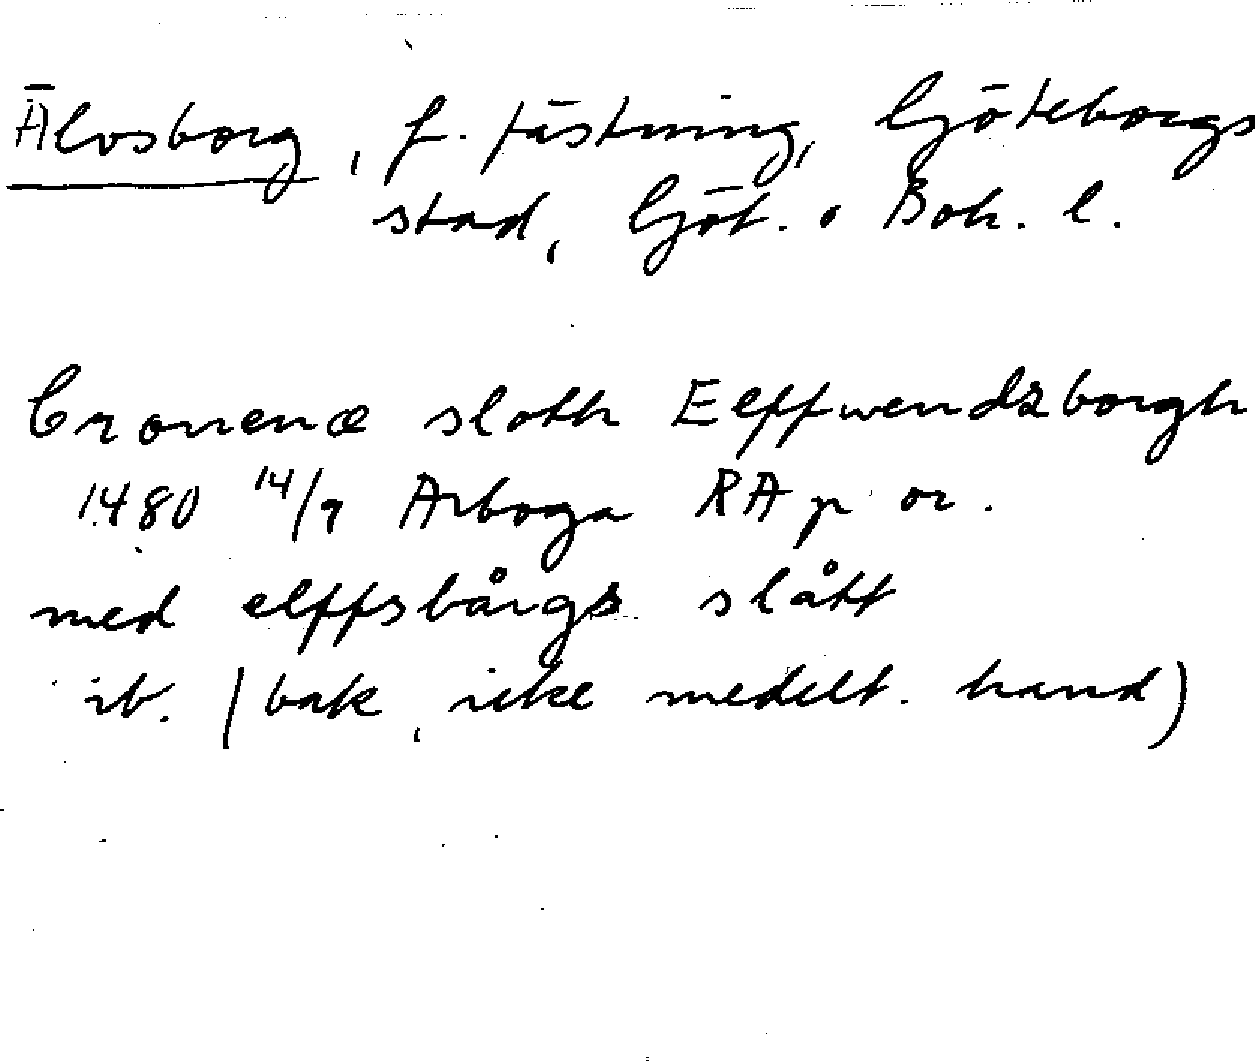 Älvsborg, f. fästning, Göteborgs
stad, Göt. o Boh. l.
Cronenæ sloth Eelffwendzborgh
1480 14/9 Arboga RA p or.
med elffsbårgz slått
ib. (bak, icke medelt. hand)